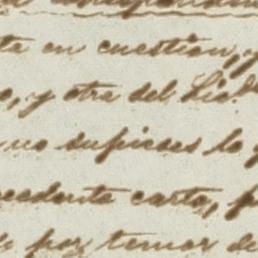 te en cuestion, y
, y otra del Lic.
no supieses lo
cedente carta, p
por temor de